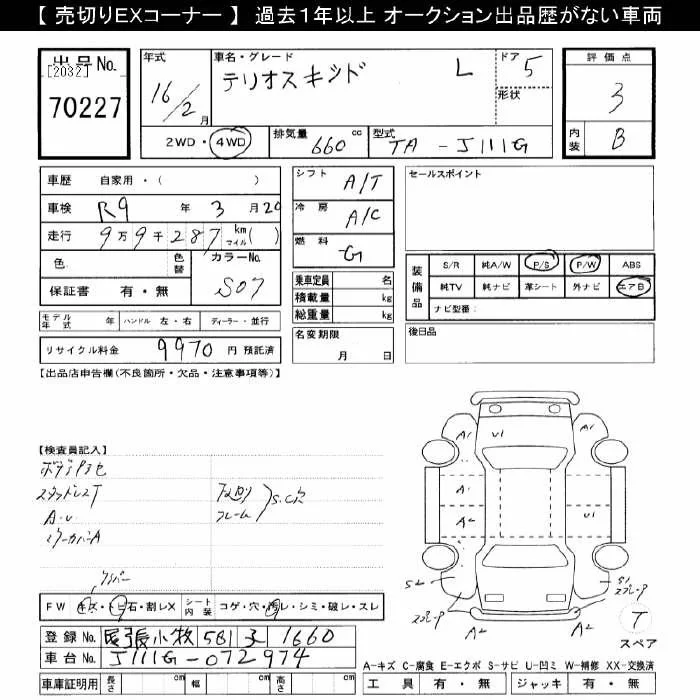 【 売切りEXコーナー 】 過去1年以上 オークション出品歴がない車両
出品名
[2032]
70227
年式
16/2月
車名・グレード
テリオスキッド L
ドア 5
形状
評価点
3
内装 B
2WD・4WD
排気量 660 cc
型式 TA-J111G
車歴 自家用・( )
車検 R9年3月20
走行 9万9千287 km マイル( )
色
色替
カラーNo. S07
保証書 有・無
シフト A/T
冷房 A/C
燃料 G
乗車定員 名
積載量 kg
総重量 kg
名変期限
月 日
セールスポイント
装備品
S/R 純A/W P/S P/W ABS
純TV 純ナビ 革シート 外ナビ エアB
ナビ型番:
後日品
モデル年式 年 ハンドル 左・右 ディーラー・並行
リサイクル料金 9970 円 預託済
【出品店申告欄(不良箇所・欠品・注意事項等)】
【検査員記入】
スタッドレスT
A・U
フレーム
S.C欠
FW キズ・トビ石・割レX シート内装 コゲ・穴・汚レ・シミ・破レ・スレ
登録No. 尾張小牧 581 1660
車台No. J111G-072974
車庫証明用 長さ cm 幅 cm 高さ cm
A1 U1
A1
A2 U1
S2 S1
A2 A2
T
スペア
A-キズ C-腐食 E-エクボ S-サビ U-凹ミ W-補修 XX-交換済
工具 有・無 ジャッキ 有・無